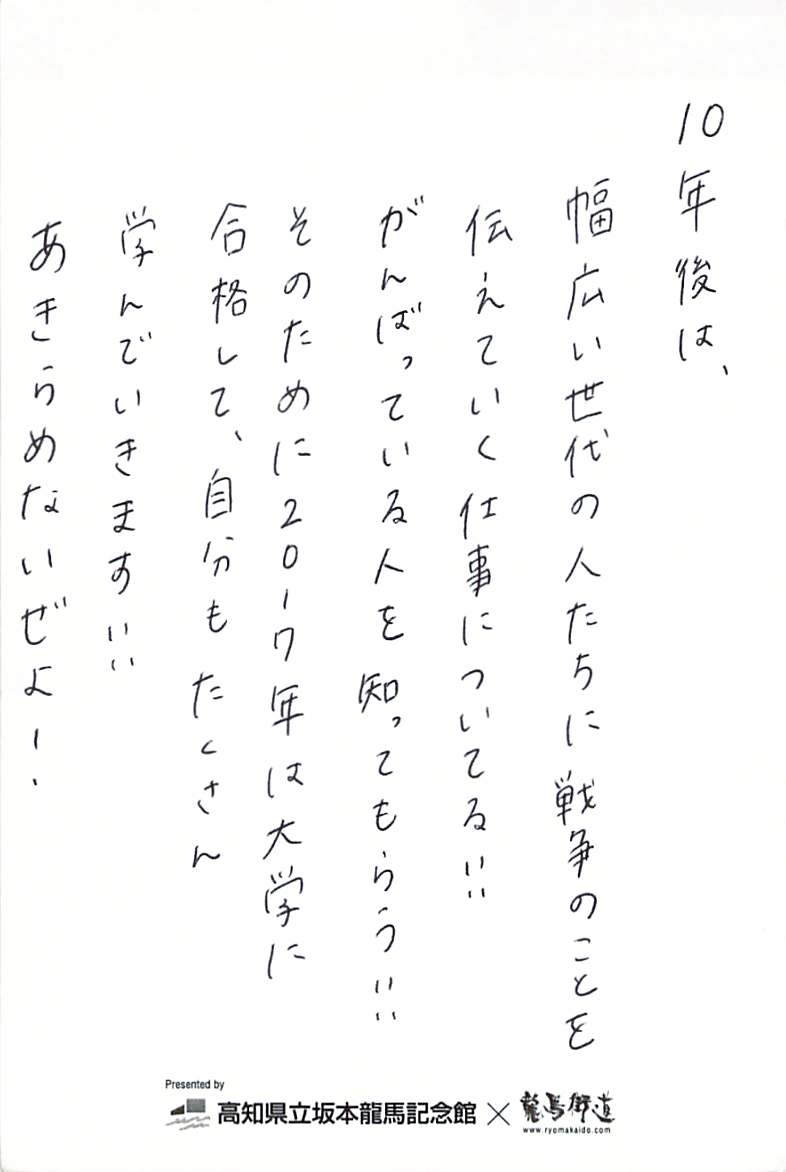 10年後は、
幅広い世代の人たちに戦争のことを
伝えていく仕事についてる!!
がんばっている人を知ってもらう!!
そのために2017年は大学に
合格して、自分もたくさん
学んでいきます!!
あきらめないぜよー!
Presented by
高知県立坂本龍馬記念館×龍馬街道
www.ryomakaido.com